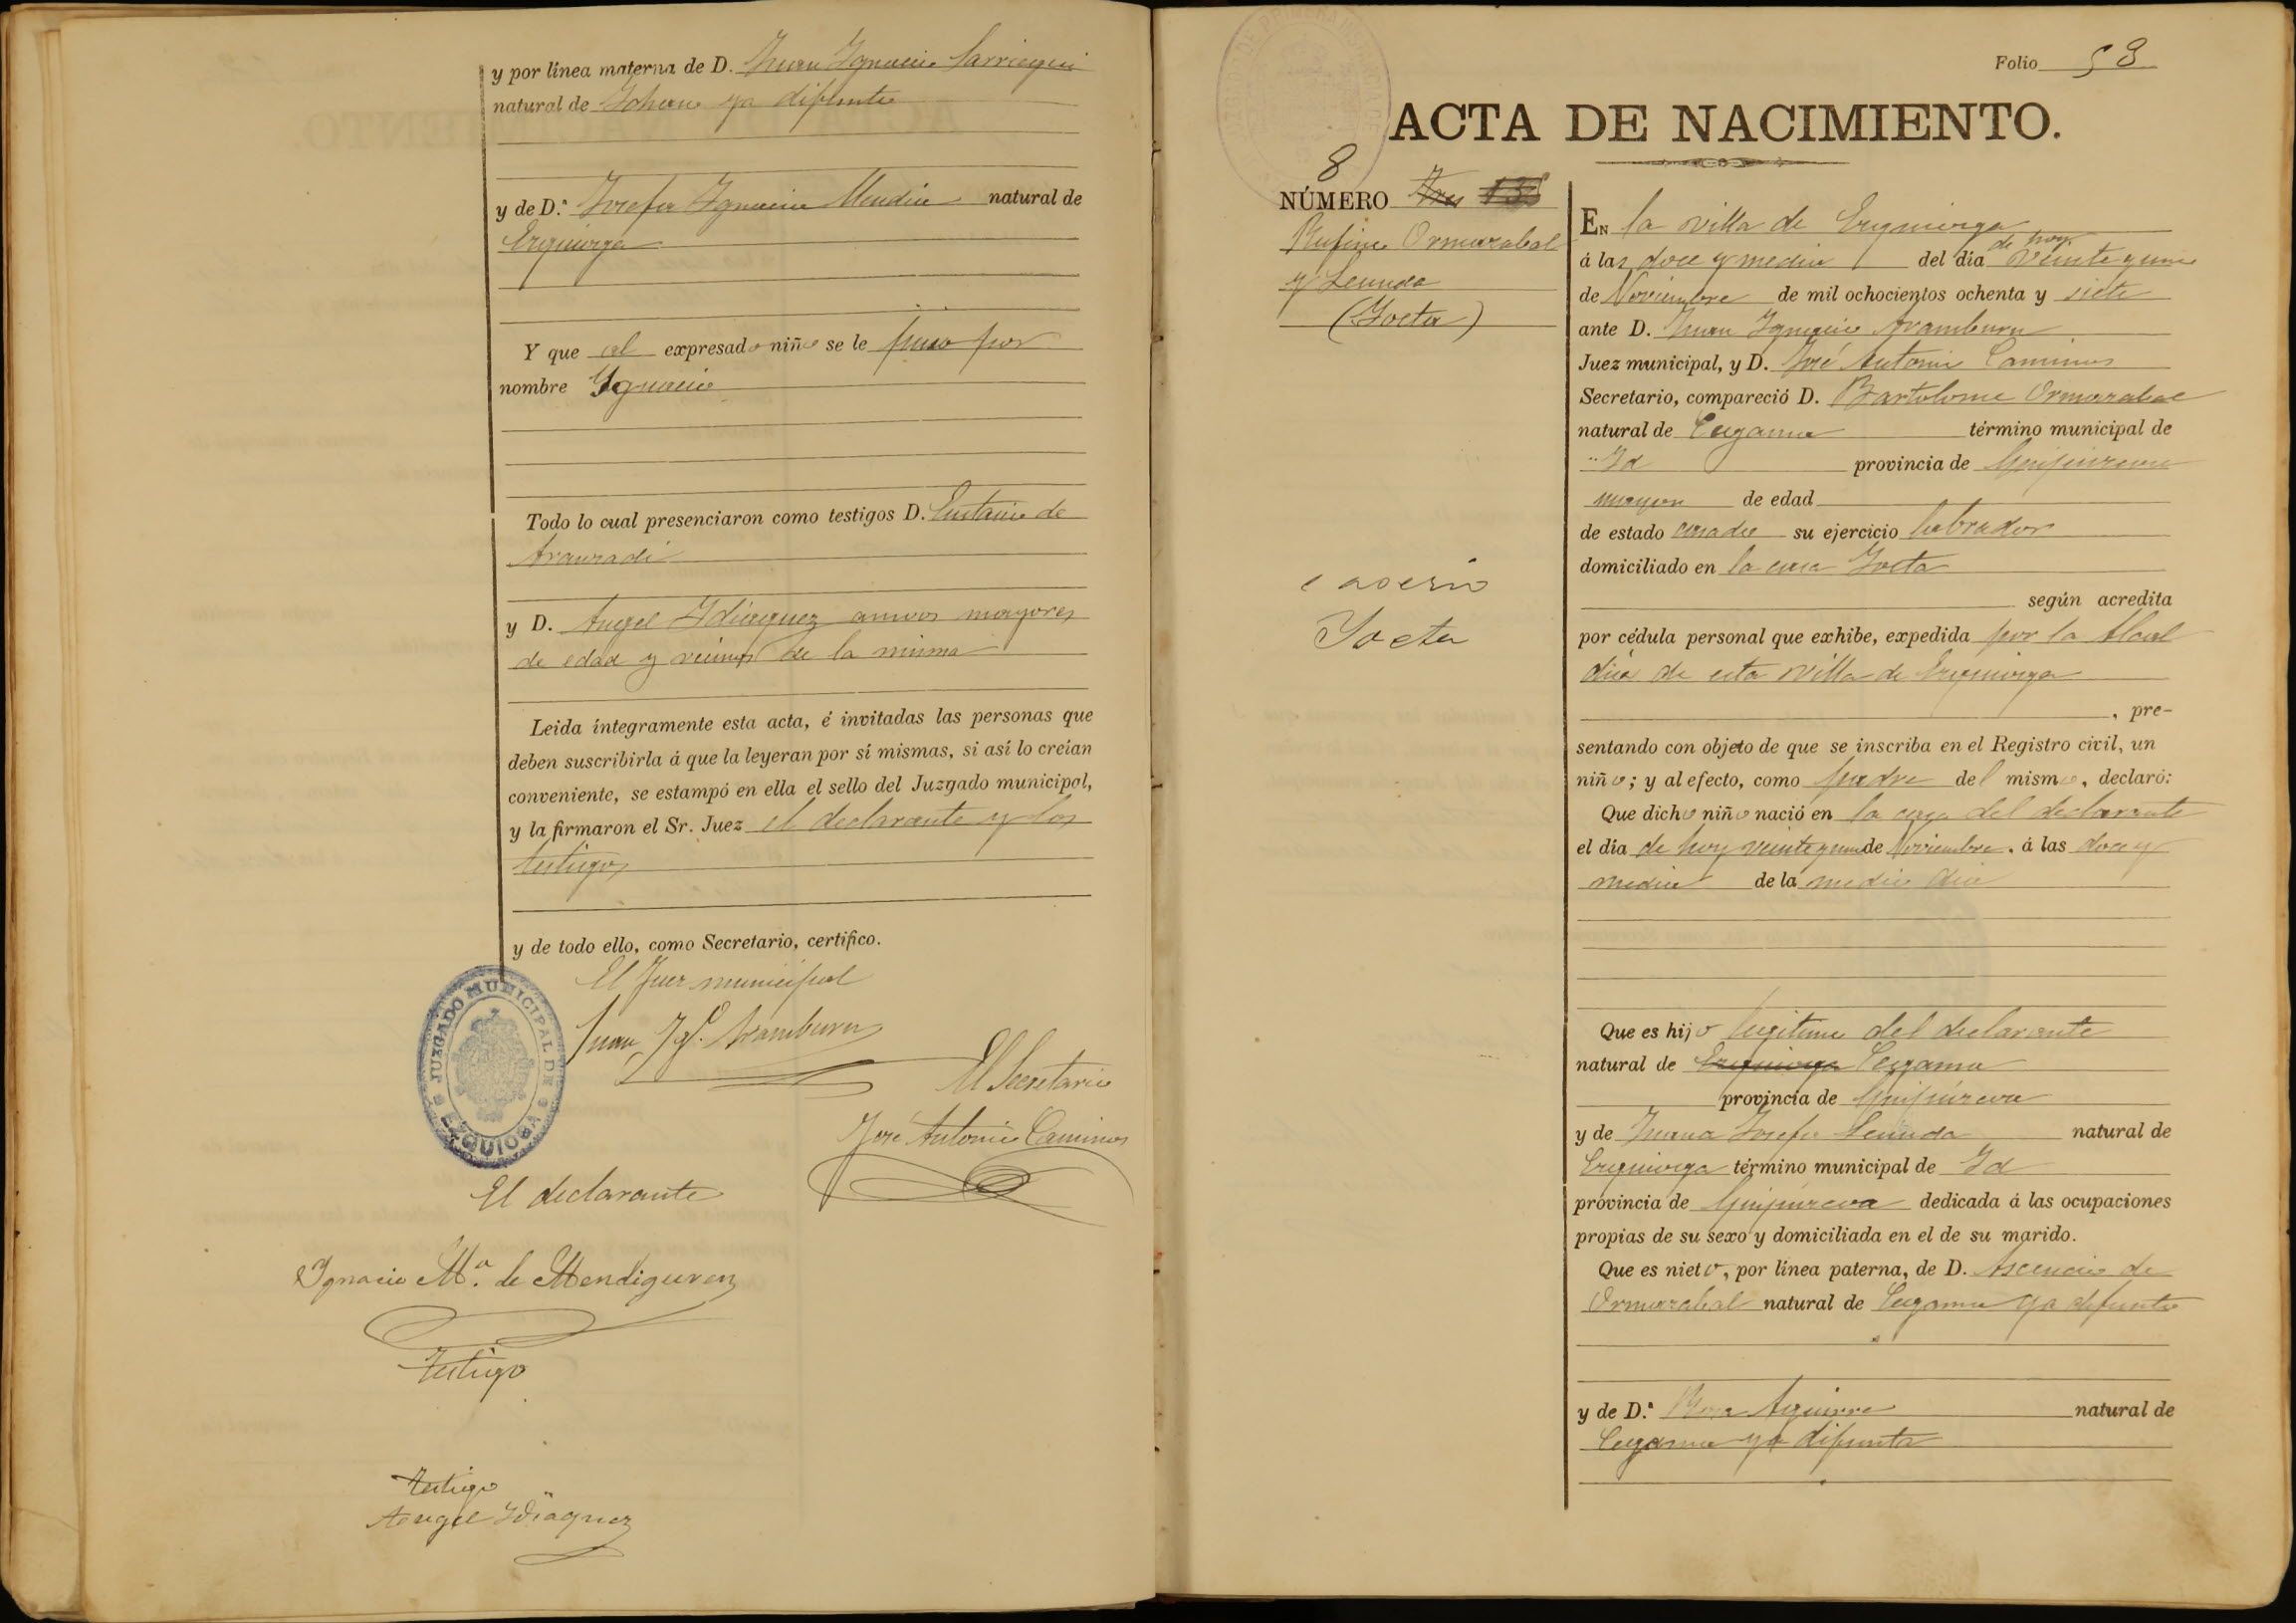 y por línea materna de D. Juan Ignacio Larriequi
natural de Ichaso ya difunto
y de D.ª Josefa Ignacia Mendia natural de
Ezquioga
Y que al expresado niño se le puso por
nombre Ignacio
Todo lo cual presenciaron como testigos D. Eustacio de
Aranzadi
y D. Angel Idiaquez amvos mayores
de edad y vecinos de la misma
Leida íntegramente esta acta, é invitadas las personas que
deben suscribirla á que la leyeran por sí mismas, si así lo creían
conveniente, se estampó en ella el sello del Juzgado municipal,
y la firmaron el Sr. Juez el declarante y los
testigos
y de todo ello, como Secretario, certifico.
El Juez municipal
Juan Ig.º Aramburu
JUZGADO MUNICIPAL DE EZQUIOGA
El Secretario
José Antonio Caminos
El declarante
Ignacio M.ª de Mendiguren
Testigo
Testigo
Angel Idiaquez
Folio 58
ACTA DE NACIMIENTO.
8
NÚMERO Tres
Rufino Ormazabal
y Leunda
(Yoeta)
caserio
Yoeta
EN la villa de Ezquioga
á las doce y media del día de hoy veinte y uno
de Noviembre de mil ochocientos ochenta y siete
ante D. Juan Ignacio Aramburu
Juez municipal, y D. José Antonio Caminos
Secretario, compareció D. Bartolome Ormazabal
natural de Cegama término municipal de
Id provincia de Guipuzcoa
mayor de edad
de estado casado su ejercicio labrador
domiciliado en la casa Yoeta
según acredita
por cédula personal que exhibe, expedida por la Alcal
dia de esta villa de Ezquioga
, pre-
sentando con objeto de que se inscriba en el Registro civil, un
niño; y al efecto, como padre del mismo, declaró:
Que dicho niño nació en la casa del declarante
el día de hoy veinte y uno de Noviembre, á las doce y
media de la medio dia
Que es hijo legitimo del declarante
natural de Ezquioga Cegama
provincia de Guipúzcoa
y de Juana Josefa Leunda natural de
Ezquioga término municipal de Id
provincia de Guipuzcoa dedicada á las ocupaciones
propias de su sexo y domiciliada en el de su marido.
Que es nieto, por línea paterna, de D. Ascencio de
Ormazabal natural de Cegama ya difunto
y de D.ª Rosa Aguirre natural de
Cegama ya difunta